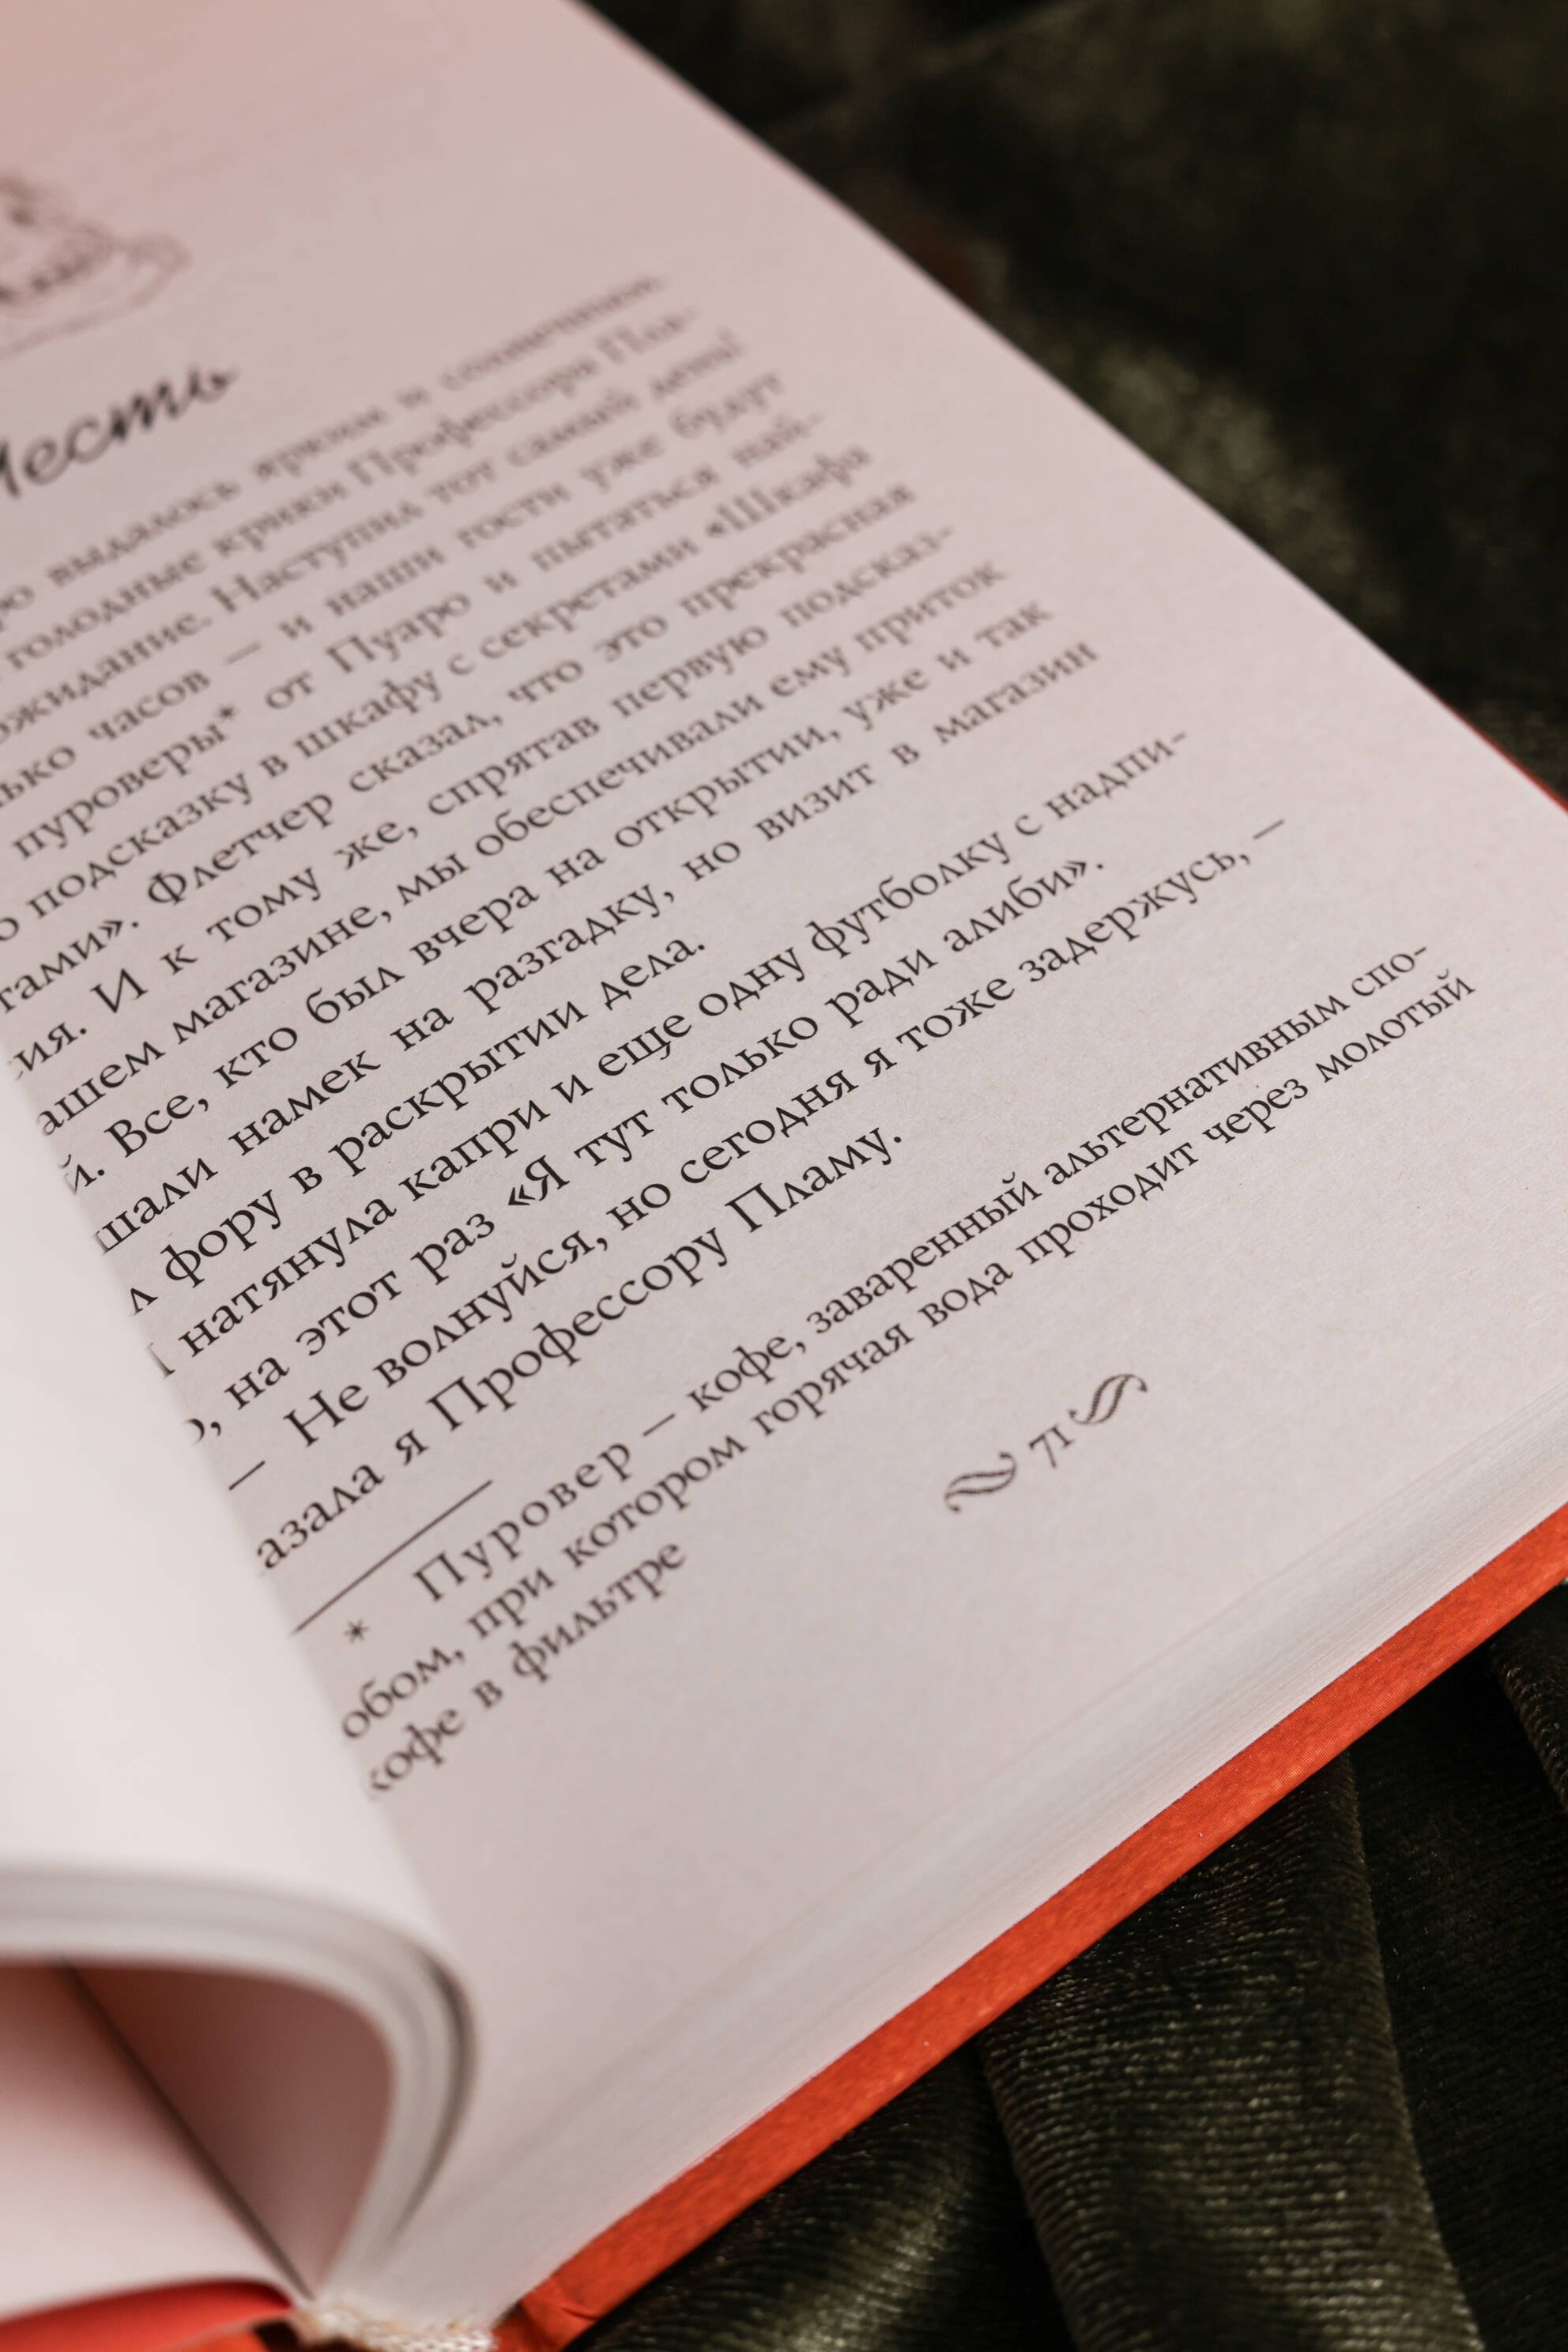 Шесть
выдалось ярким и солнечным.
голодные крики Профессора Пла-
ожидание. Наступил тот самый день!
лько часов — и наши гости уже будут
пуроверы* от Пуаро и пытаться най-
о подсказку в шкафу с секретами «Шкафа
тами». Флетчер сказал, что это прекрасная
сия. И к тому же, спрятав первую подсказ-
ашем магазине, мы обеспечивали ему приток
й. Все, кто был вчера на открытии, уже и так
шали намек на разгадку, но визит в магазин
л фору в раскрытии дела.
натянула капри и еще одну футболку с надпи-
о, на этот раз «Я тут только ради алиби».
— Не волнуйся, но сегодня я тоже задержусь, —
азала я Профессору Пламу.
* Пуровер — кофе, заваренный альтернативным спо-
обом, при котором горячая вода проходит через молотый
кофе в фильтре
71